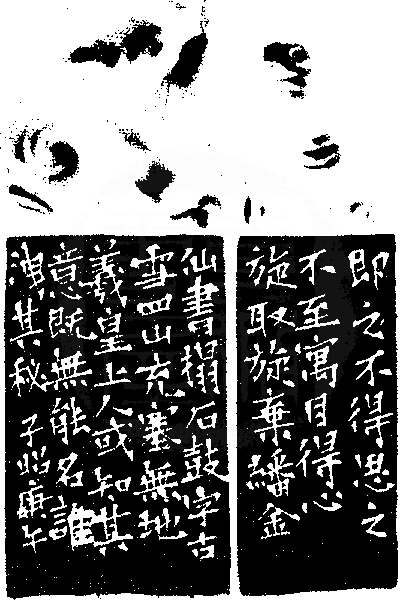 即之不得思之
不至寓目得心
旋取旋棄繙金
仙書搨石鼓字古
雪四山充塞無地
羲皇上人或知其
意既無能名誰
洩其秘 子昭庚午